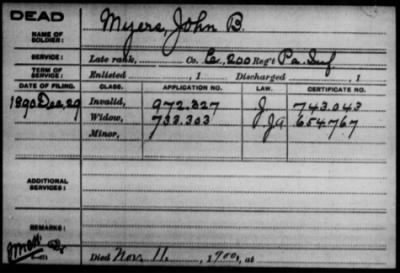 DEAD
NAME OF SOLDIER: Myers, John B.
SERVICE: Late rank, Co. E, 200 Reg't Pa. Inf
TERM OF SERVICE: Enlisted , 1 Discharged , 1
DATE OF FILING. CLASS. APPLICATION NO. LAW. CERTIFICATE NO.
1890 Dec, 29 Invalid, 972.327 J 743.043
Widow, 733.303 J. 654.767
Minor,
ADDITIONAL SERVICES:
REMARKS:
Died Nov. 11, 1900, at